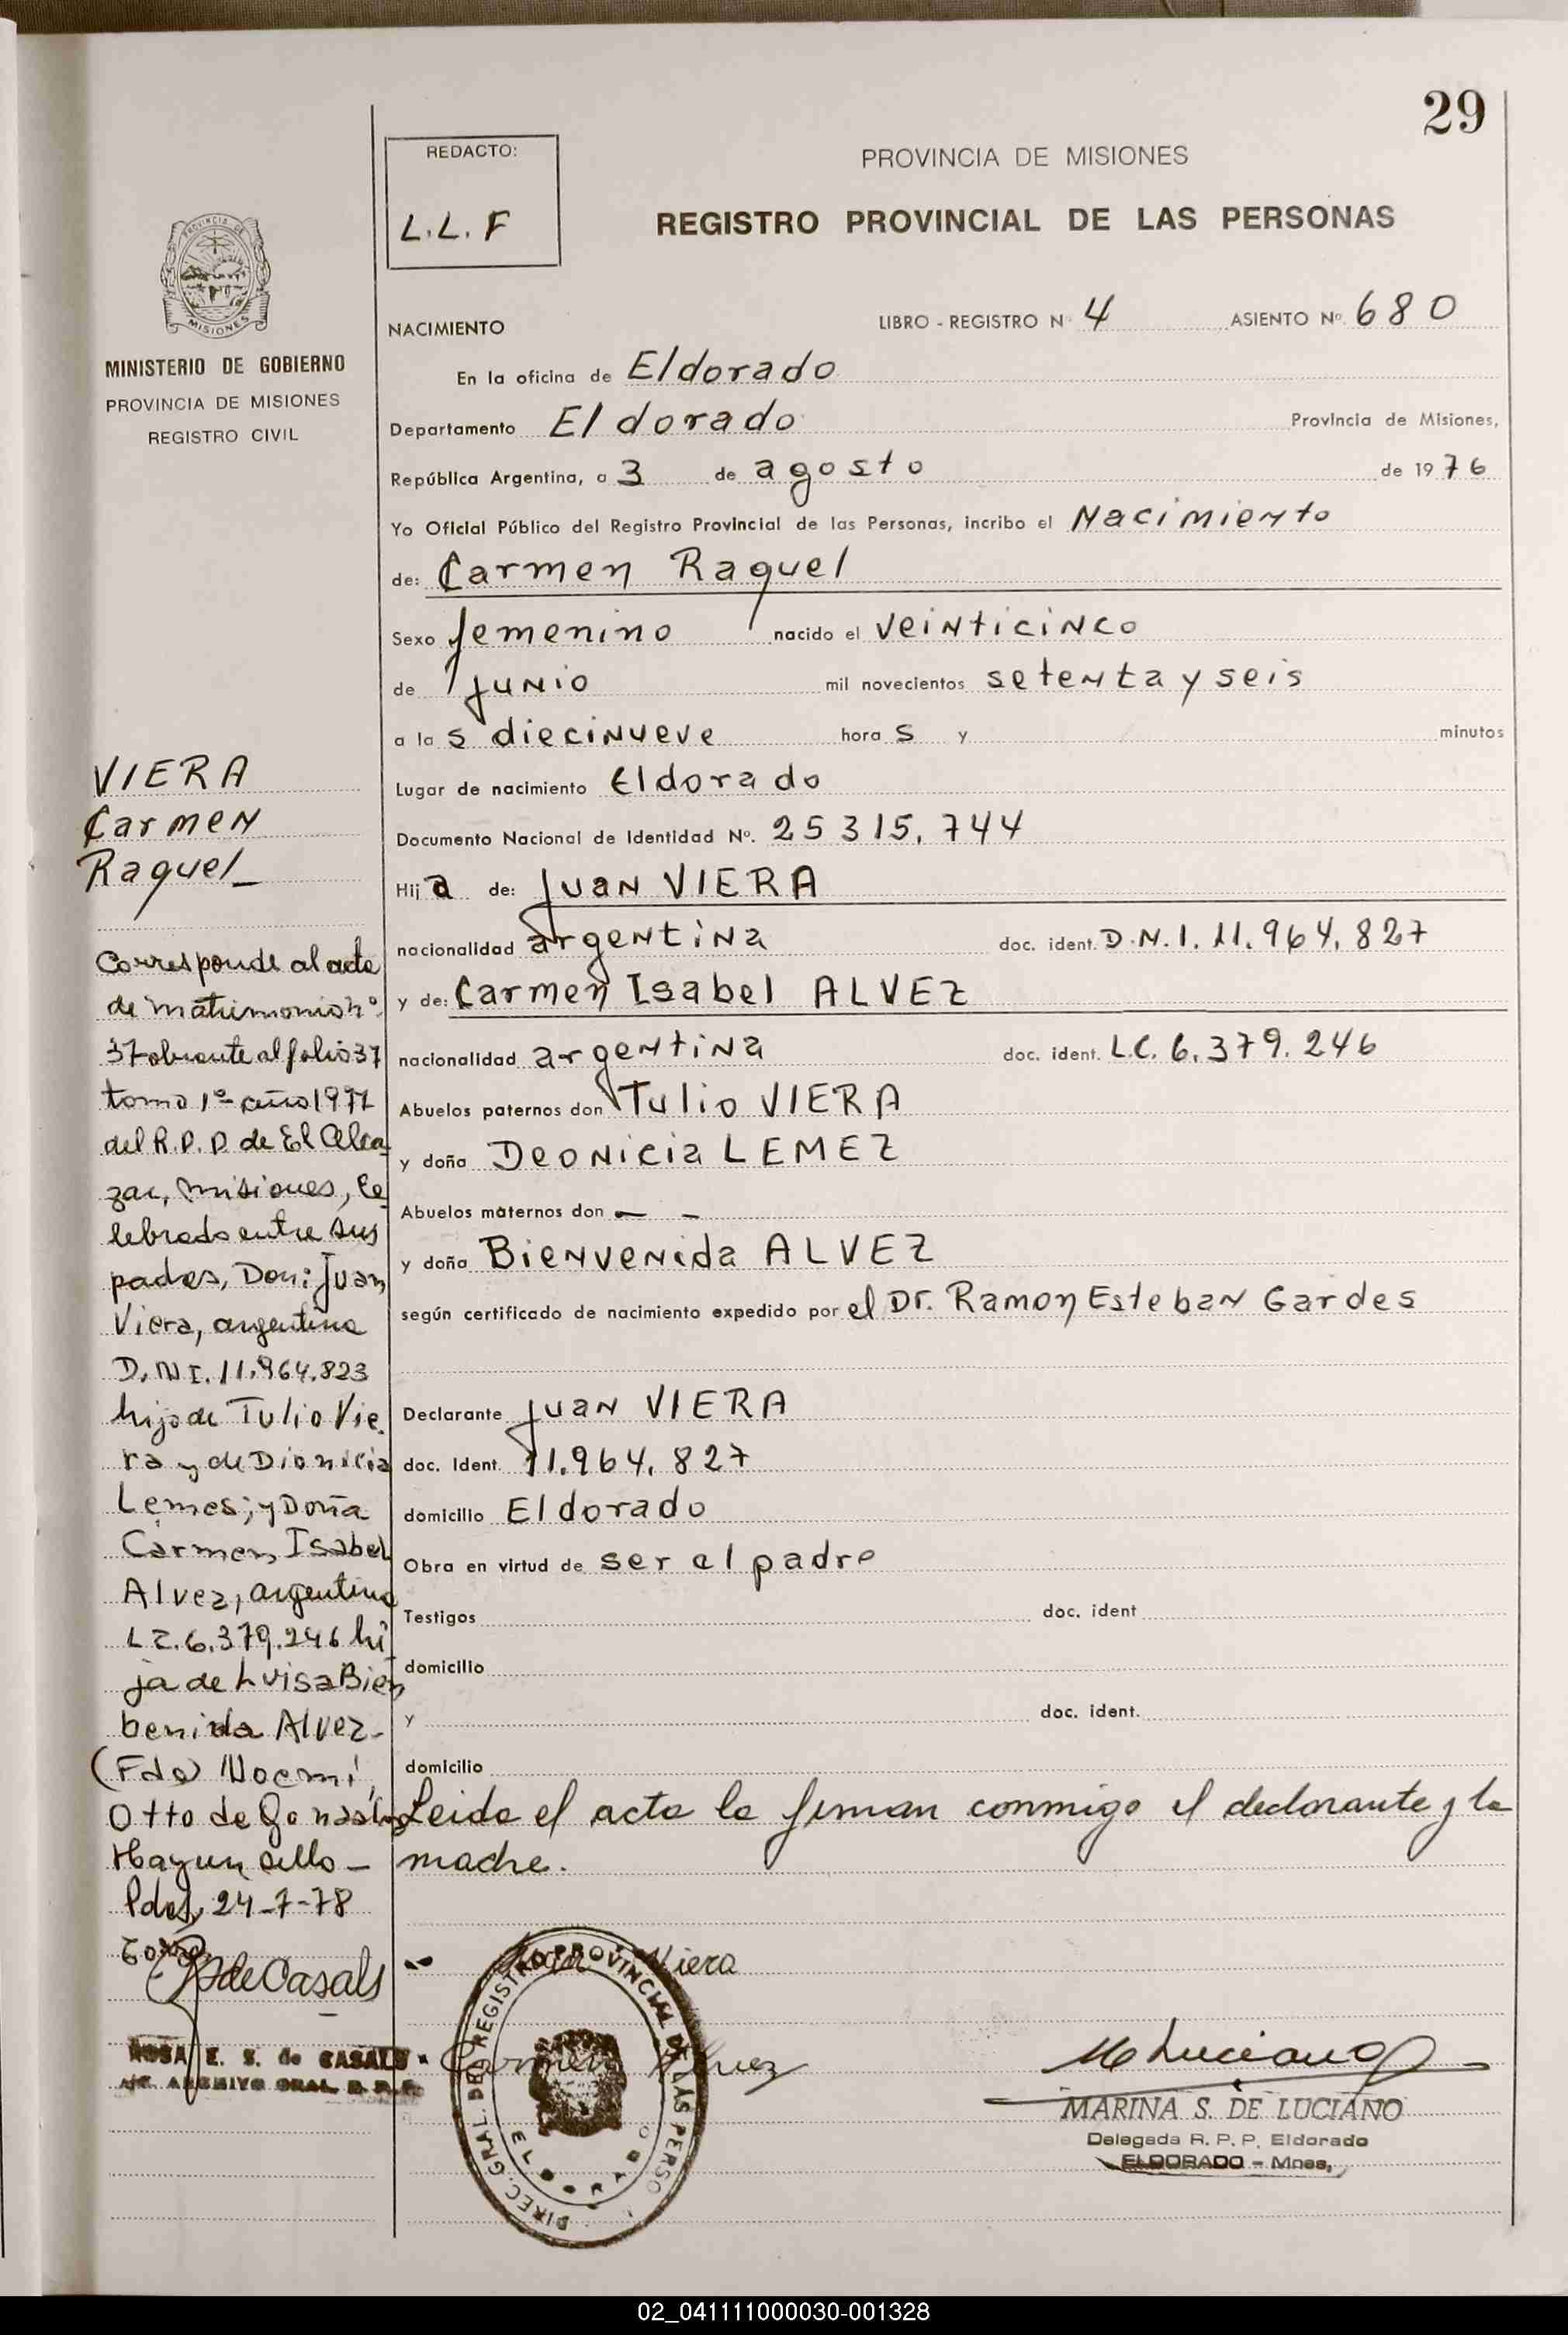 29
REDACTO:
L.L.F
PROVINCIA DE MISIONES
REGISTRO PROVINCIAL DE LAS PERSONAS
PROVINCIA DE
MISIONES
MINISTERIO DE GOBIERNO
PROVINCIA DE MISIONES
REGISTRO CIVIL
NACIMIENTO
LIBRO - REGISTRO N 4 ASIENTO Nº. 680
En la oficina de Eldorado
Departamento Eldorado Provincia de Misiones,
República Argentina, a 3 de agosto de 1976
Yo Oficial Público del Registro Provincial de las Personas, incribo el Nacimiento
de: Carmen Raquel
Sexo femenino nacido el veinticinco
de junio mil novecientos setenta y seis
a las diecinueve horas y minutos
Lugar de nacimiento Eldorado
Documento Nacional de Identidad Nº. 25315.744
Hija de: Juan VIERA
nacionalidad argentina doc. ident. D.N.I. 11.964.827
y de: Carmen Isabel ALVEZ
nacionalidad argentina doc. ident. L.C. 6.379.246
Abuelos paternos don Tulio VIERA
y doña Deonicia LEMEZ
Abuelos maternos don — –
y doña Bienvenida ALVEZ
según certificado de nacimiento expedido por el Dr. Ramon Esteban Gardes
Declarante Juan VIERA
doc. Ident. 11.964.827
domicilio Eldorado
Obra en virtud de ser el padre
Testigos doc. ident
domicilio
y doc. ident.
domicilio
Leida el acta la firman conmigo el declarante y la
madre.
VIERA
Carmen
Raquel_
Corresponde al acta
de matrimonio nº
37 obrante al folio 37
tomo 1º año 1977
del R.P.P. de El Alca
zar, Misiones, ce
lebrado entre sus
padres, Don: Juan
Viera, argentino
D.N.I. 11.964.823
hijo de Tulio Vie
ra y de Dionicia
Lemes; y Doña
Carmen Isabel
Alvez, argentina
LC. 6.379.246 hi
ja de Luisa Bien
benida Alvez-
(Fdo) Noemí
Otto de González
Hay un sello –
Pdas, 24-7-78
de Casals
ROSA E. S. de CASALS
A/C. ARCHIVO GRAL. R. P. P.
Juan Viera
Carmen Alvez
DIREC. GRAL. DE REGISTRO PROVINCIAL DE LAS PERSO
ELDORADO
M Luciano
MARINA S. DE LUCIANO
Delegada R. P. P. Eldorado
ELDORADO - Mnes.
02_041111000030-001328